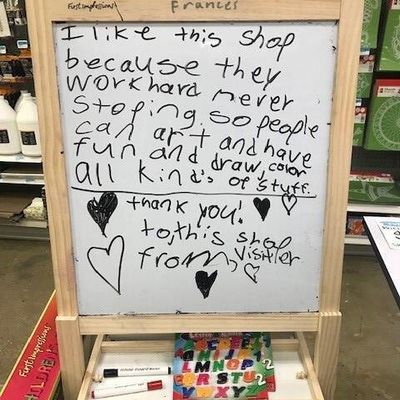 First Impressions
Frances
I like this shop
because they
work hard never
stoping. so people
can art and have
fun and draw, color
all kind's of stuff.
thank you!
to, this shop
from, Visitier
First Impressions